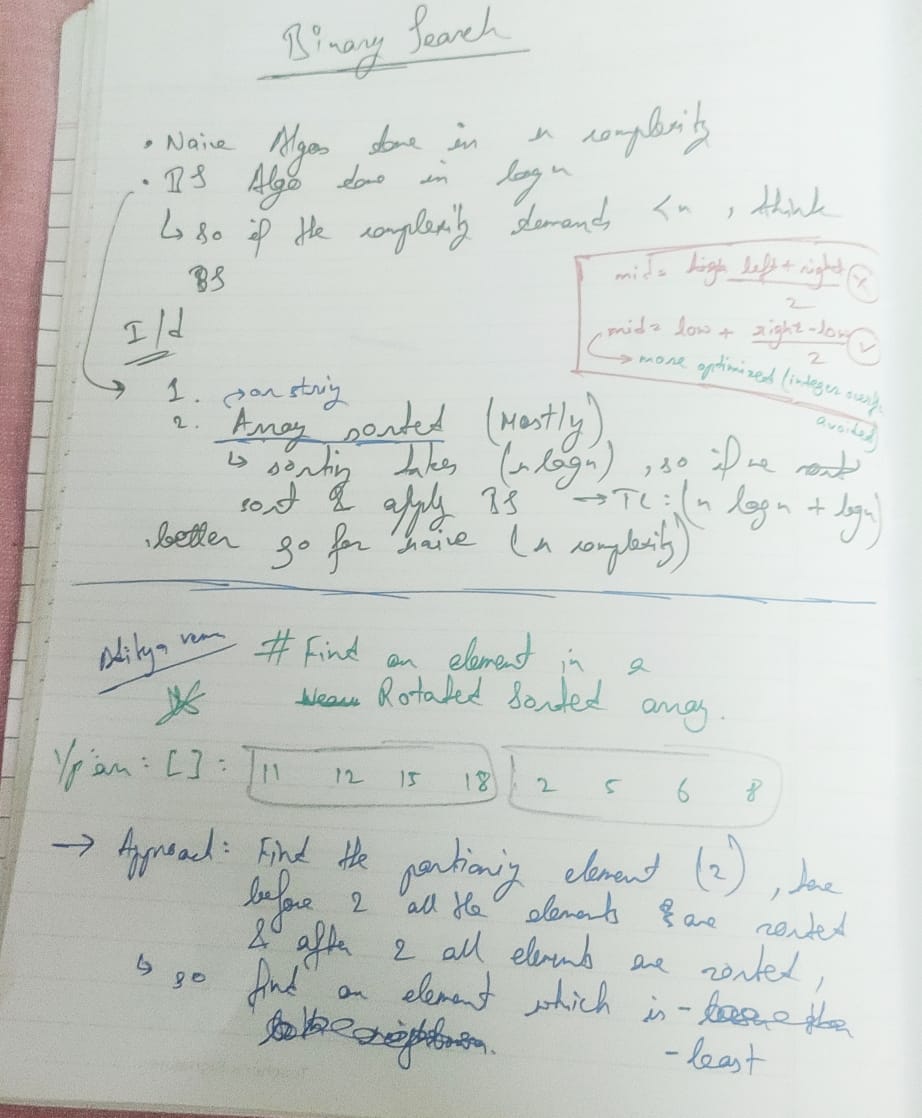 Binary Search
• Naive Algos done in n complexity
• BS Algo done in logn
↳ so if the complexity demands <n, think
BS
mid = high left + right / 2 ⓧ
mid = low + right - low / 2 ✓
→ more optimized (integer overf.
avoided)
I/d
1. → on string
2. Array sorted (Mostly)
↳ sorting takes (n logn), so if we
sort & apply BS → TC: (n logn + logn)
better go for naive (n complexity)
Aditya verma
# Find an element in a
Rotated Sorted array.
I/p arr: []: 11 12 15 18 2 5 6 8
→ Approach: Find the partioning element (2), here
before 2 all the elements are sorted
& after 2 all elements are sorted,
↳ so find an element which is
- least